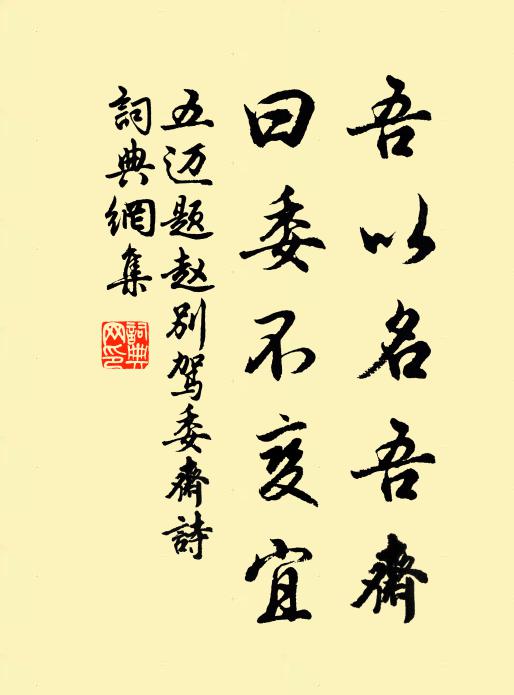 吾以名吾齋
曰委不变宜
五迈题赵别驾委齋詩
詞典網集
詞典网印